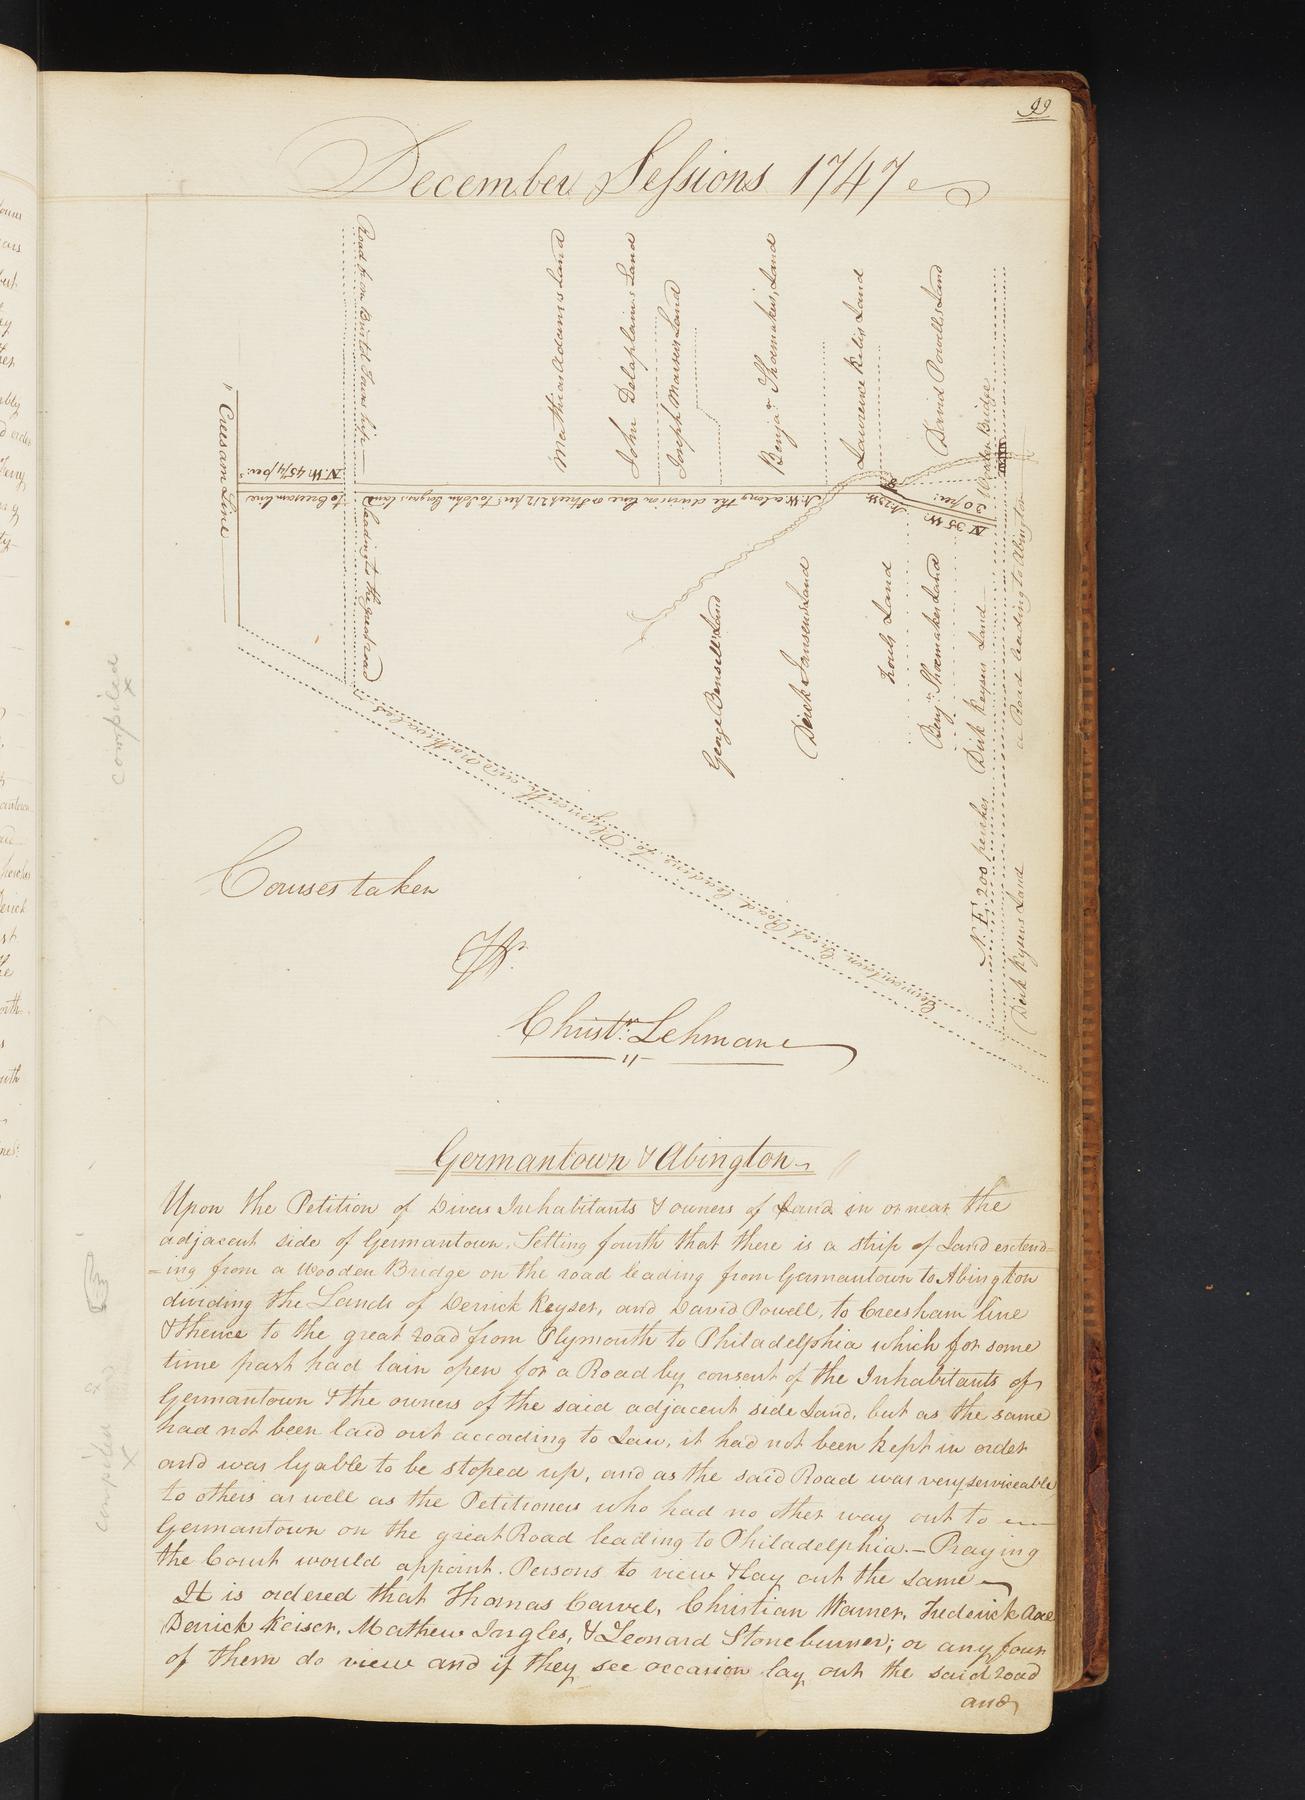 99
December Sessions 1747
Road from Bristol Township
leading to the great road
Cresam Line
N. W. 45/4/per:s
to Creesam line
Mathias Adams Land
John Delaplains Land
Joseph Marsers Land
Benja.r Shoemakers Land
Laurence Kiles Land
David Powells Land
Wooden Bridge
N. W. along the division line a Streek 212 per:s to John
N. 23 W.
N 35 W.
20 per:
George Bensells Land
Dirck Jansens Land
Louts Land
Benj.n Shoemakers Land
Dirk Keysers Land
a Road leading to Abington
N. E. 200 perches
Dirk Kysers Land
Germantown Great Road leading to Plymouth and Northwales
Courses taken
Pr.
Christ.n Lehman
Germantown & Abington
Upon the Petition of Divers Inhabitants & owners of Land in or near the
adjacent side of Germantown. Setting fourth that there is a strip of Land extend=
=ing from a Wooden Bridge on the road leading from Germantown to Abington
dividing the Lands of Derrick Keyser, and David Powell, to Creesham line
& thence to the great road from Plymouth to Philadelphia which for some
time past had lain open for a Road by consent of the Inhabitants of
Germantown & the owners of the said adjacent side Land, but as the same
had not been laid out according to Law, it had not been kept in order
and was lyable to be stoped up, and as the said Road was very serviceable
to others as well as the Petitioners who had no other way out to
Germantown on the great Road leading to Philadelphia.— Praying
the Court would appoint. Persons to view & lay out the same
It is ordered that Thomas Carvel, Christian Warner, Frederick Axe
Derrick Keiser, Mathew Ingles, & Leonard Stoneburner; or any four
of them do view and if they see occasion lay out the said road
and
compiled
x
compiled
x